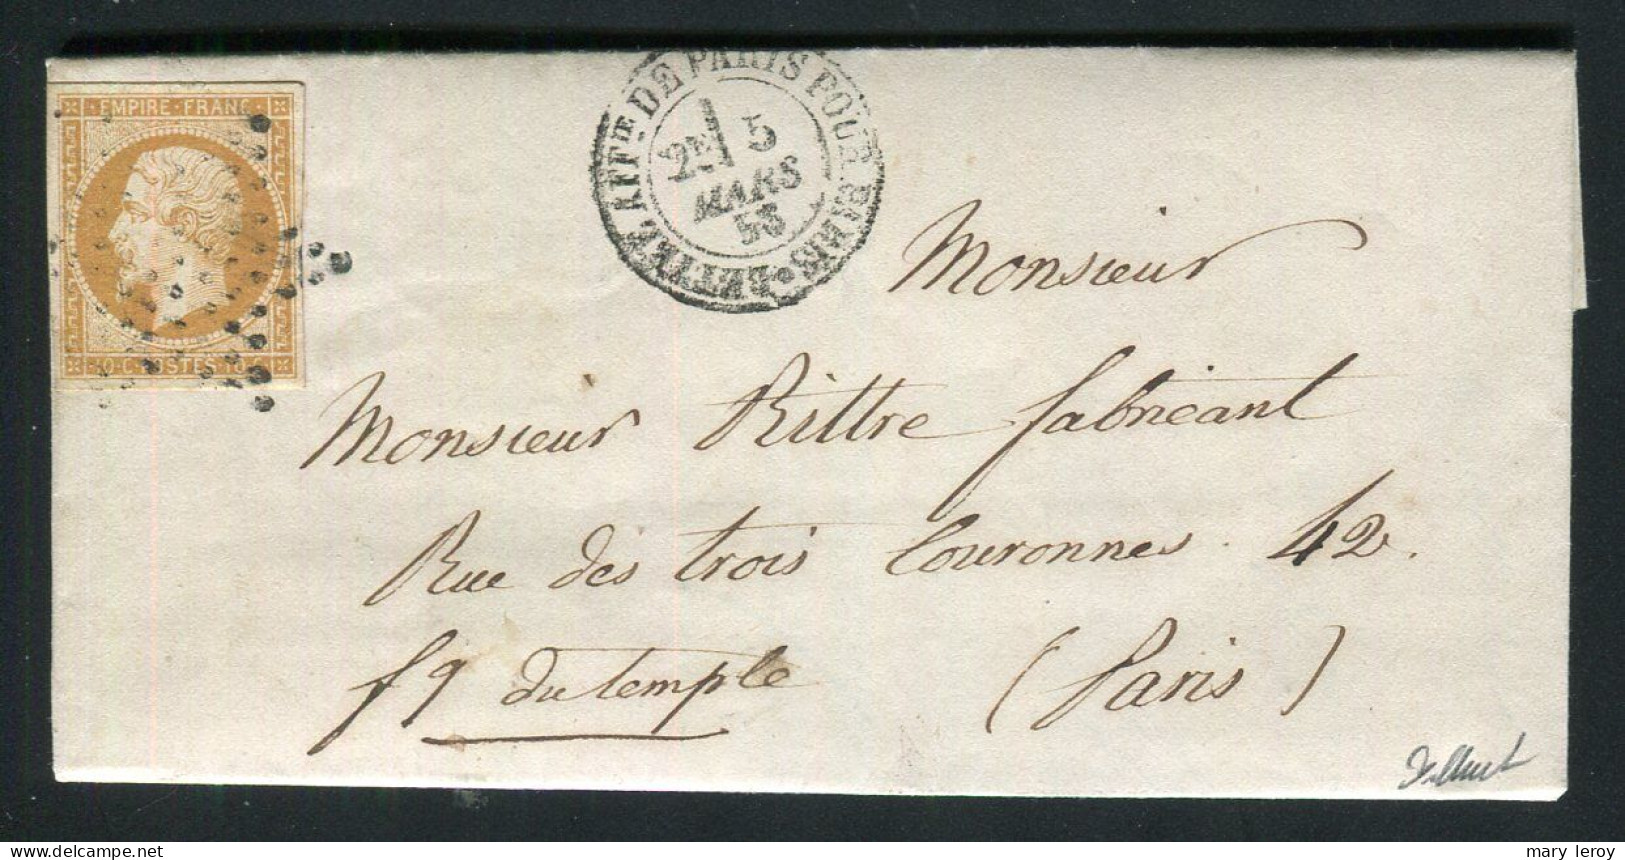 EMPIRE · FRANC ·
10 · C · POSTES · 10 · C ·
LETTRE AFFIE DE PARIS POUR PARIS
2E 5
MARS
55
Monsieur
Monsieur Rittre fabricant
Rue des trois Couronnes . 42 .
fg du temple (Paris)
mary leroy